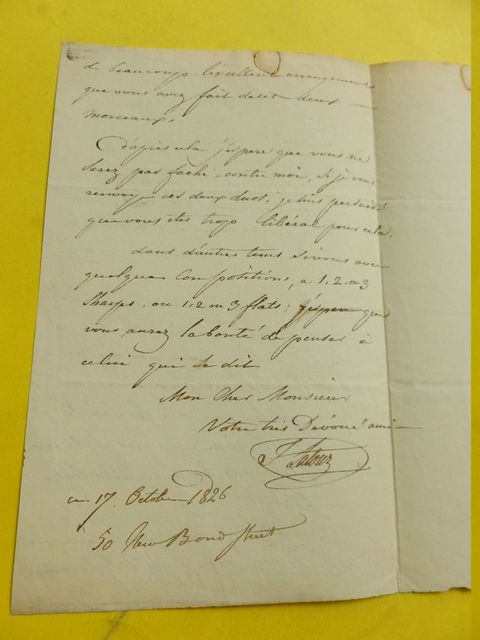 de beaucoup l'excellent arrangement
que vous avez fait desdits deux
morceaux.
D'après cela j'espere que vous ne
serez pas faché contre moi, si je vous
renvoy ces deux duos; je suis persuadé
que vous etes trop liberal pour cela.
dans d'autres tems si vous avez
quelques Compositions, a 1. 2. ou 3
Sharps, ou 1. 2 ou 3 flats; j'espere que
vous aurez la bonté de penser à
celui qui se dit
Mon Cher Monsieur
Votre très Dévoué ami
Latour
ce 17. Octobre 1826
50 New Bond Street